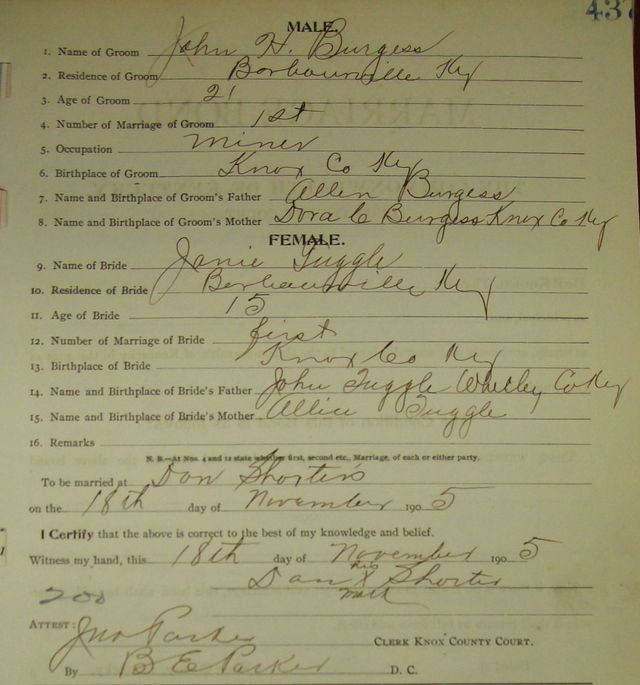 437
MALE.
1. Name of Groom John H. Burgess
2. Residence of Groom Barbourville Ky
3. Age of Groom 21
4. Number of Marriage of Groom 1st
5. Occupation miner
6. Birthplace of Groom Knox Co Ky
7. Name and Birthplace of Groom's Father Allen Burgess
8. Name and Birthplace of Groom's Mother Dora C Burgess Knox Co Ky
FEMALE.
9. Name of Bride Janie Tuggle
10. Residence of Bride Barbourville Ky
11. Age of Bride 15
12. Number of Marriage of Bride first
13. Birthplace of Bride Knox Co Ky
14. Name and Birthplace of Bride's Father John Tuggle Whitley Co Ky
15. Name and Birthplace of Bride's Mother Allice Tuggle
16. Remarks
N. B.—At Nos. 4 and 12 state whether first, second etc., Marriage, of each or either party.
To be married at Dan Shorter's
on the 18th day of November 1905
I Certify that the above is correct to the best of my knowledge and belief.
Witness my hand, this 18th day of November 1905
his
Dan X Shorter
mark
200
ATTEST: Jno Parker CLERK KNOX COUNTY COURT.
By B E Parker D. C.